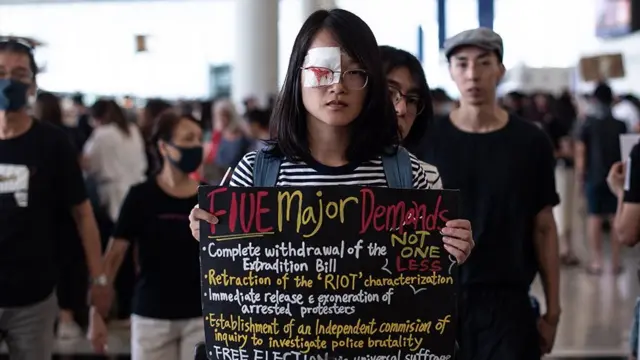 FIVE Major Demands
NOT
ONE
LESS
• Complete withdrawal of the
Extradition Bill
• Retraction of the 'RIOT' characterization
• Immediate release & exoneration of
arrested protesters
• Establishment of an Independent commision of
inquiry to investigate police brutality
• FREE ELECTION via universal suffrage